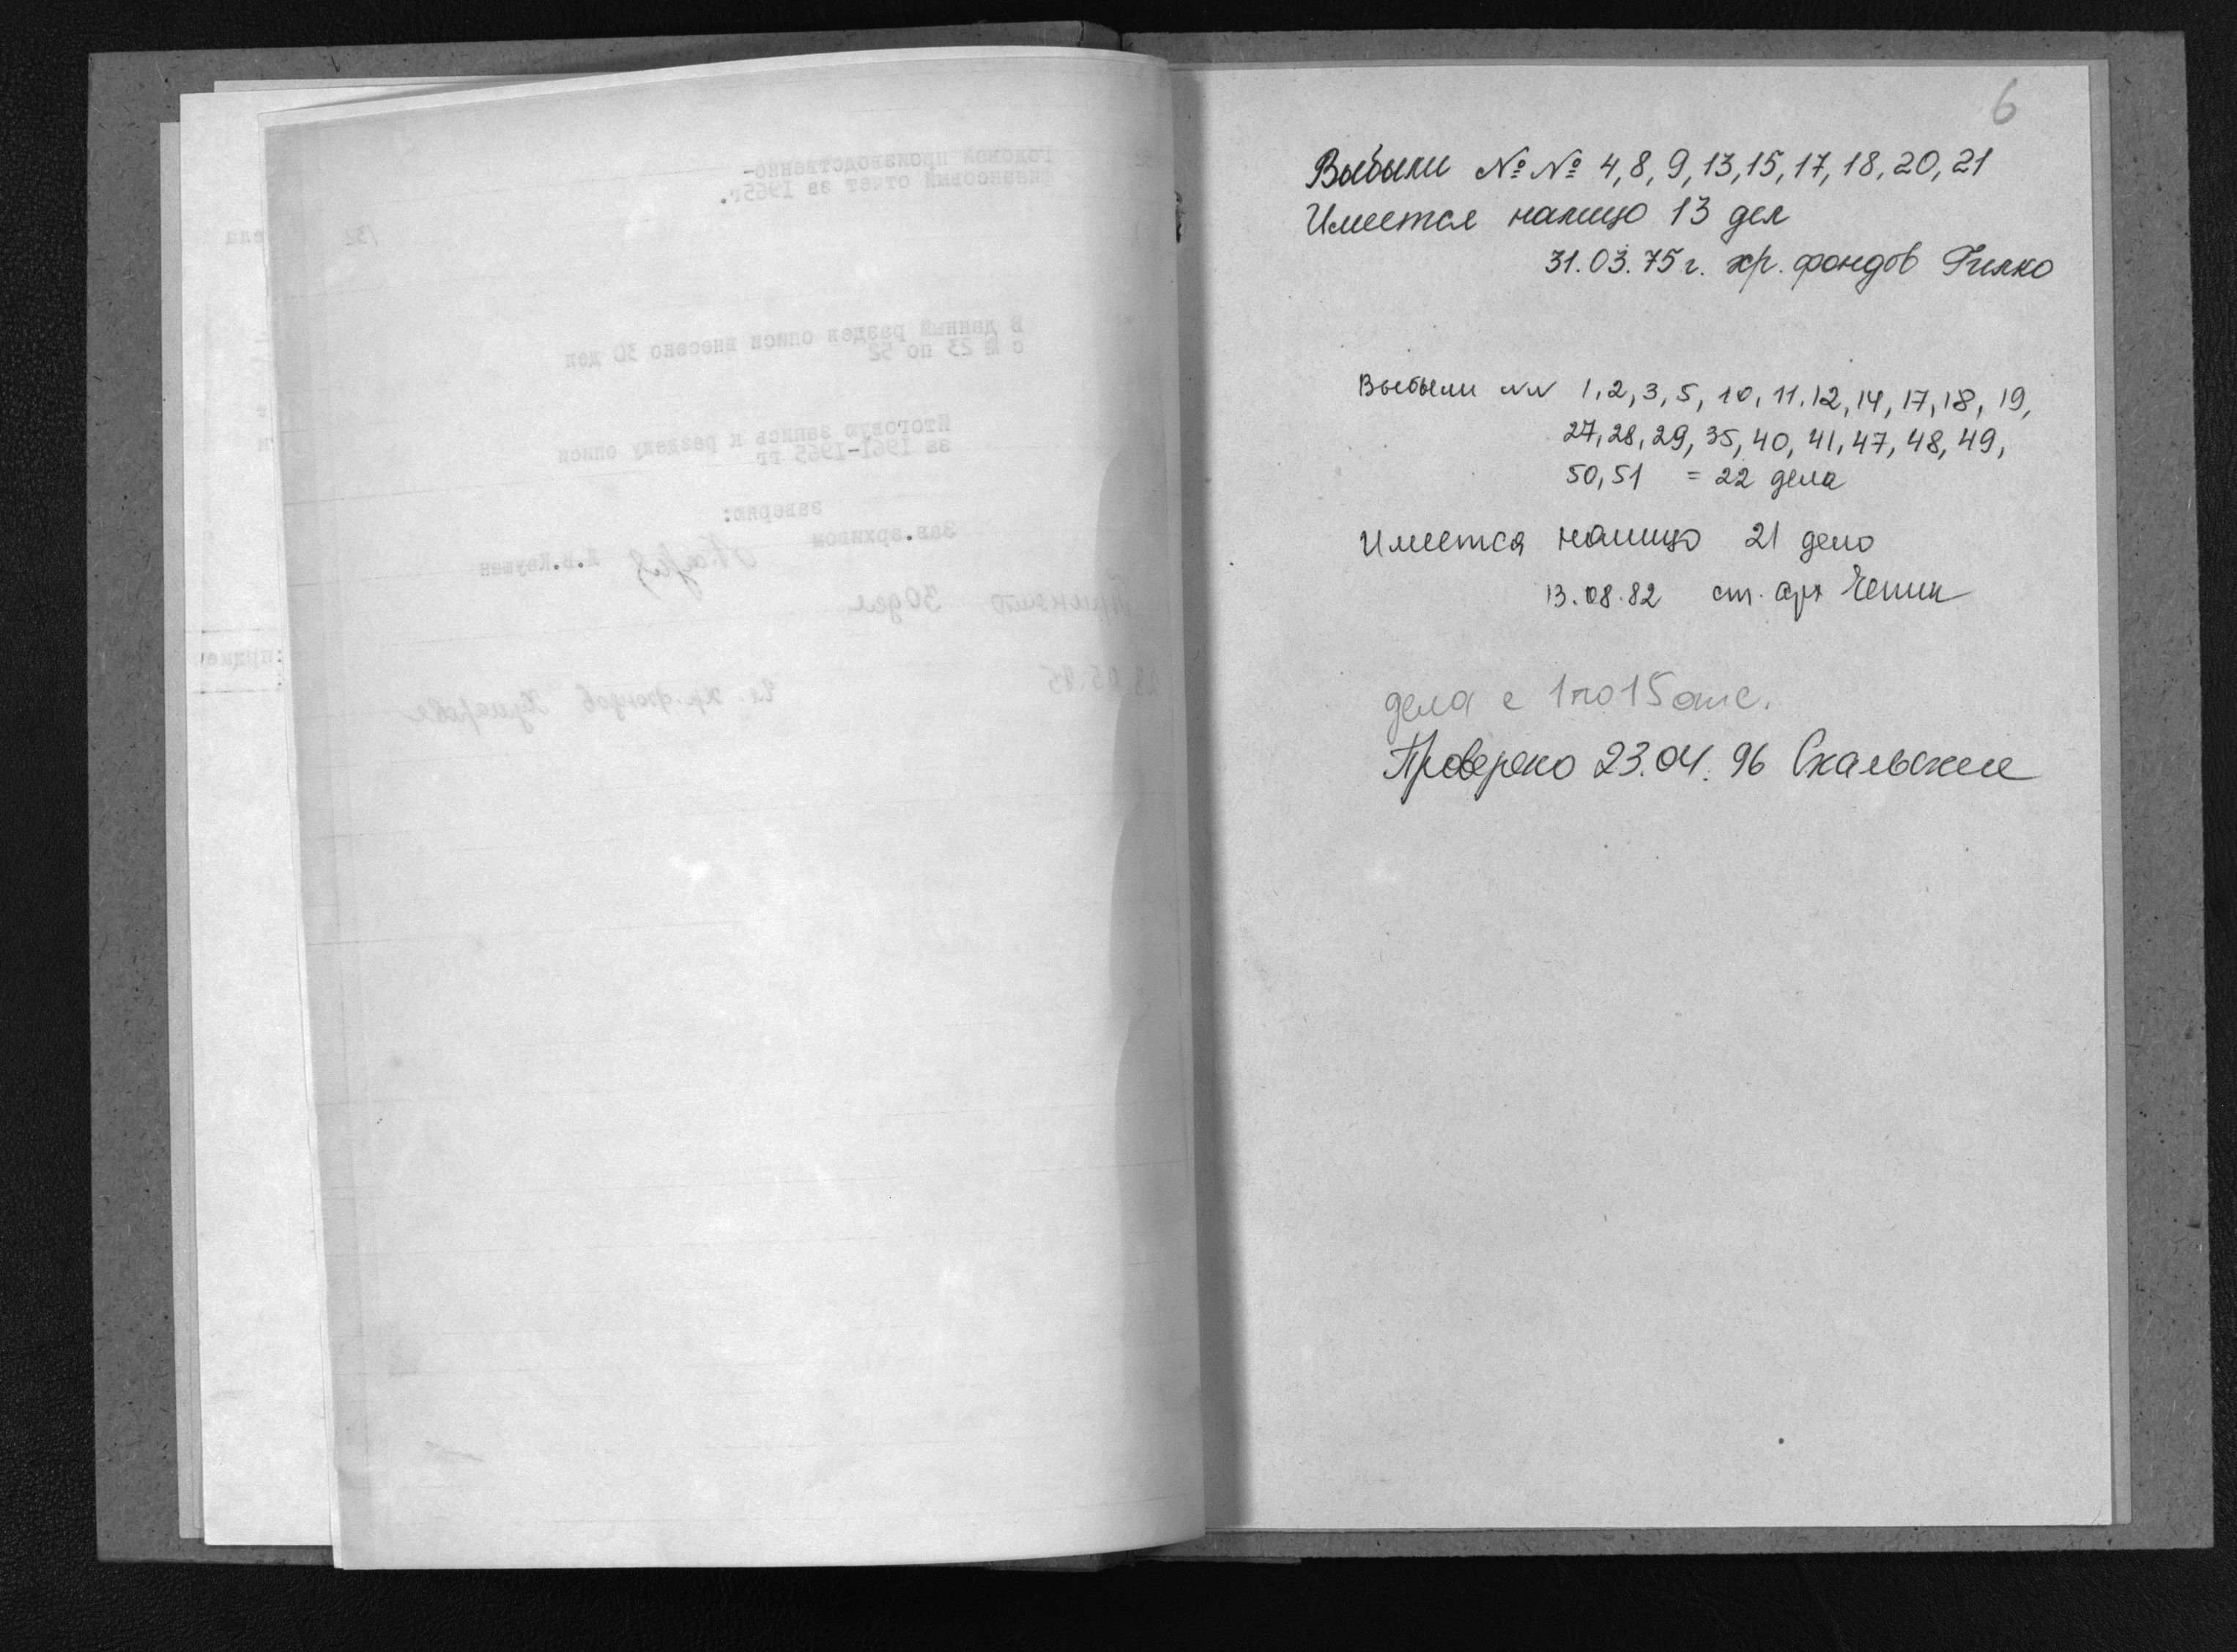 6
Выбыли №№ 4, 8, 9, 13, 15, 17, 18, 20, 21
Имеется налицо 13 дел
31.03.75 г. хр. фондов Гилко
Выбыли NN 1, 2, 3, 5, 10, 11, 12, 14, 17, 18, 19,
27, 28, 29, 35, 40, 41, 47, 48, 49,
50, 51 = 22 дела
Имеется налицо 21 дело
13.08.82 ст. арх
дела с 1 по 15 отс.
Проверено 23.04.96
Годовой производственно-
финансовый отчет за 1965г.
132
В данный раздел описи внесено 30 дел
с № 23 по 52
Итоговую запись к разделу описи
за 1961-1965 гг
заверяю:
Зав.архивом
Принято 30 дел
хр. фондов